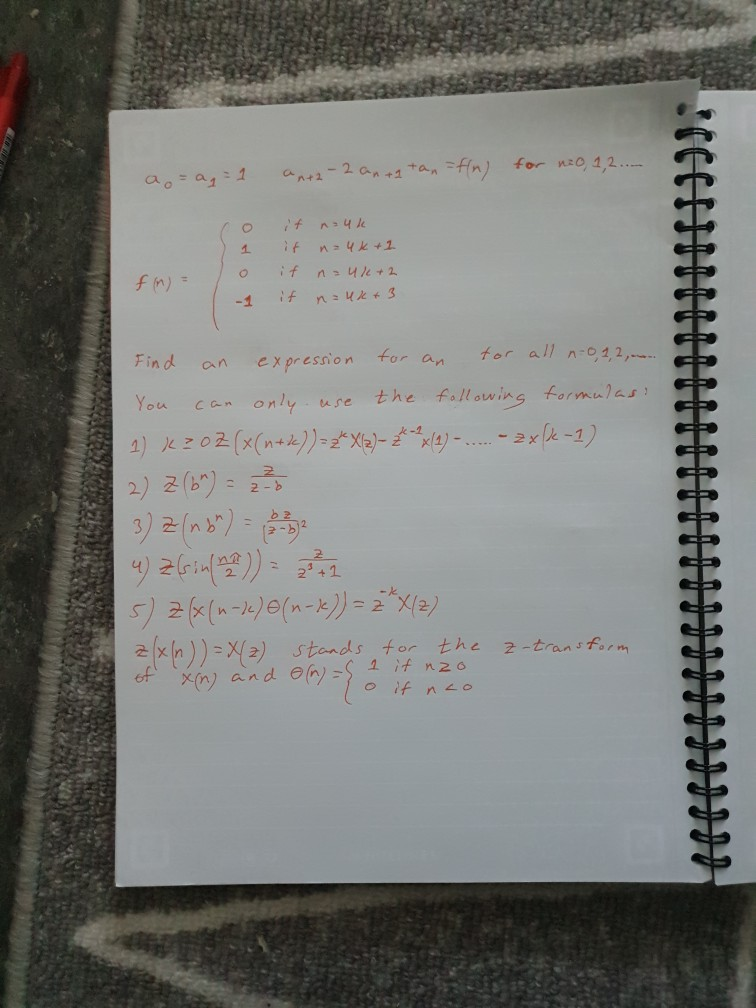 a₀ = a₁ = 1 aₙ₊₂ - 2aₙ₊₁ + aₙ = f(n) for n=0,1,2.....
f(n) = { 0 if n = 4k
1 if n = 4k+1
0 if n = 4k+2
-1 if n = 4k+3
Find an expression for aₙ for all n=0,1,2,......
You can only use the following formulas:
1) k ≥ 0 Z(x(n+k)) = zᵏX(z) - zᵏ⁻¹x(1) - ..... - zx(k-1)
2) Z(bⁿ) = z/(z-b)
3) Z(nbⁿ) = bz/(z-b)²
4) Z(sin(nπ/2)) = z/(z²+1)
5) Z(x(n-k)θ(n-k)) = z⁻ᵏX(z)
Z(x(n)) = X(z) stands for the z-transform
of x(n) and θ(n) = { 1 if n≥0
0 if n<0